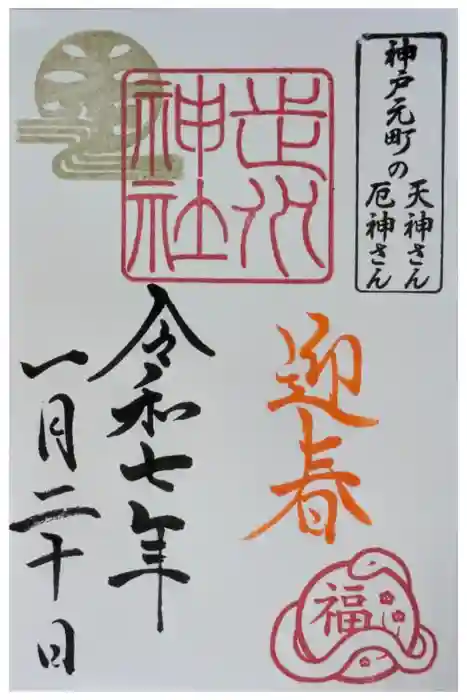 神戸元町の
天神さん
厄神さん
走水
神社
迎春
福
令和七年
一月二十日